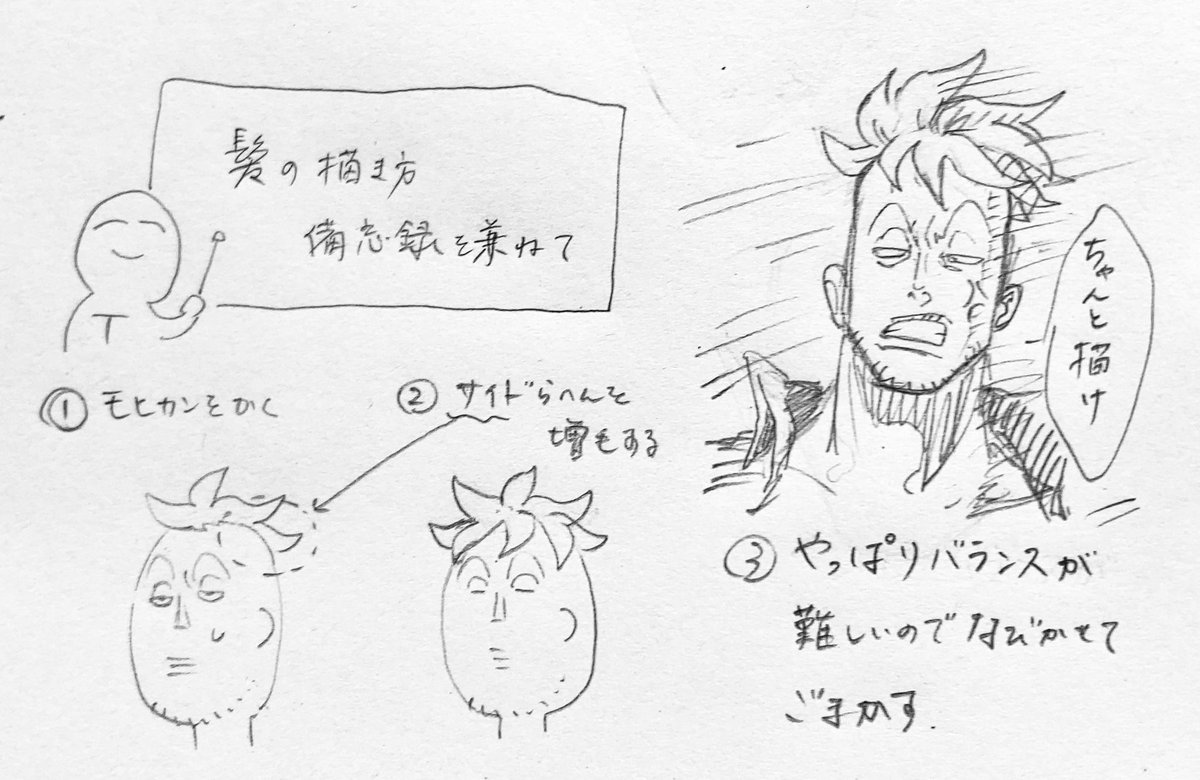 髪の描き方
備忘録を兼ねて
① モヒカンをかく
② サイドらへんを
増毛する
ちゃんと描け
③ やっぱりバランスが
難しいのでなびかせて
ごまかす.